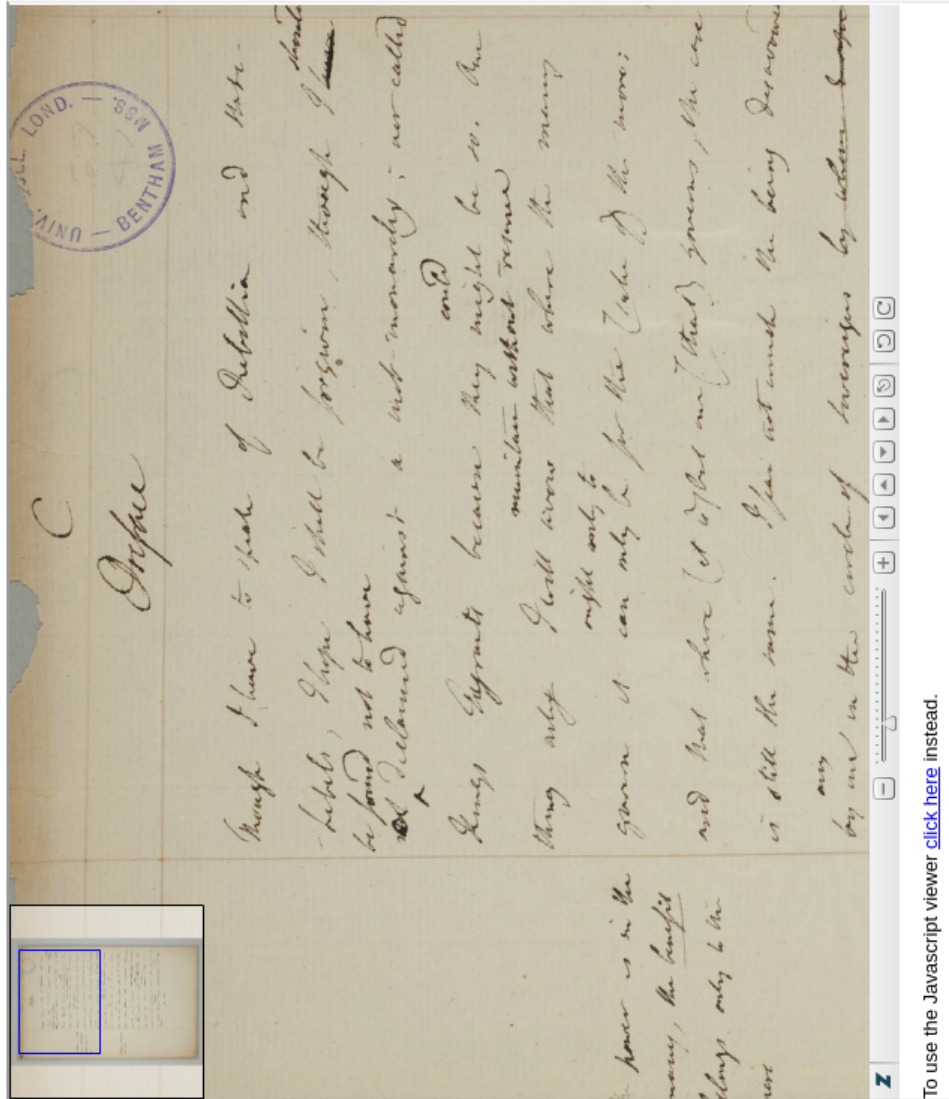 UNIV. COLL. LOND. — MSS. — BENTHAM
C
Though I have to speak of Rebellion and
rebels, I hope I shall be forgiven, though I should
be found not to have
declaimed against a monarchy; nor called
and
Kings Tyrants because they might be so. One
maintain without reserve
thing only I will that where the many
right only to
govern it can only be for the (sake of) the more;
and that where (it is) but one (that) governs, the case
is still the same. I fear not much the being disavowed
any
by one in the circle of sovereigns by whom
power is in the
many, the benefit
belongs only to the
more
Z
To use the Javascript viewer click here instead.